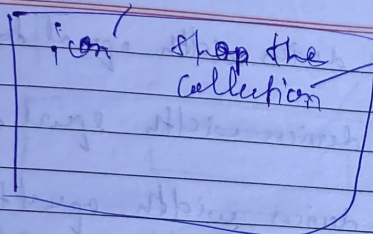 icon shop the
collection